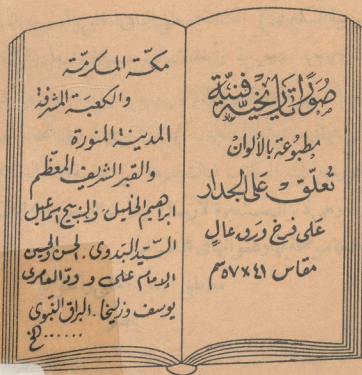 صور تاريخية فنية
مطبوعة بالألوان
تعلق على الجدار
على فرخ ورق عال
مقاس ٤١ × ٥٧ سم
مكة المكرمة
والكعبة المشرفة
المدينة المنورة
والقبر الشريف المعظم
ابراهيم الخليل والذبيح اسماعيل
السيد البدوي. الحسن والحسين
الإمام علي و ودّ العامري
يوسف وزليخا. البراق النبوي
...... الخ